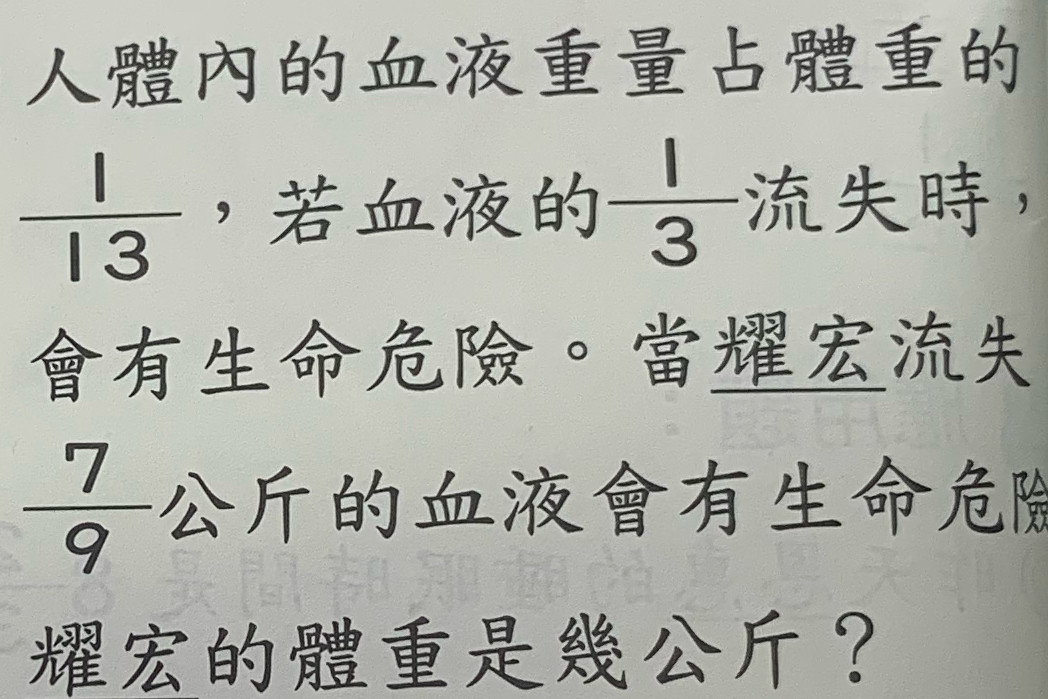 人體內的血液重量占體重的
1/13，若血液的1/3流失時，
會有生命危險。當耀宏流失
7/9公斤的血液會有生命危險
耀宏的體重是幾公斤？